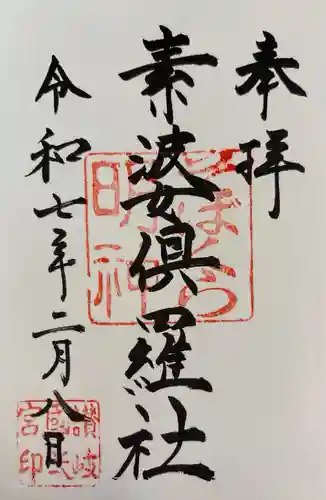 奉拝
素婆倶羅社
令和七年二月八日
そばくら
明神
讃岐
宮印